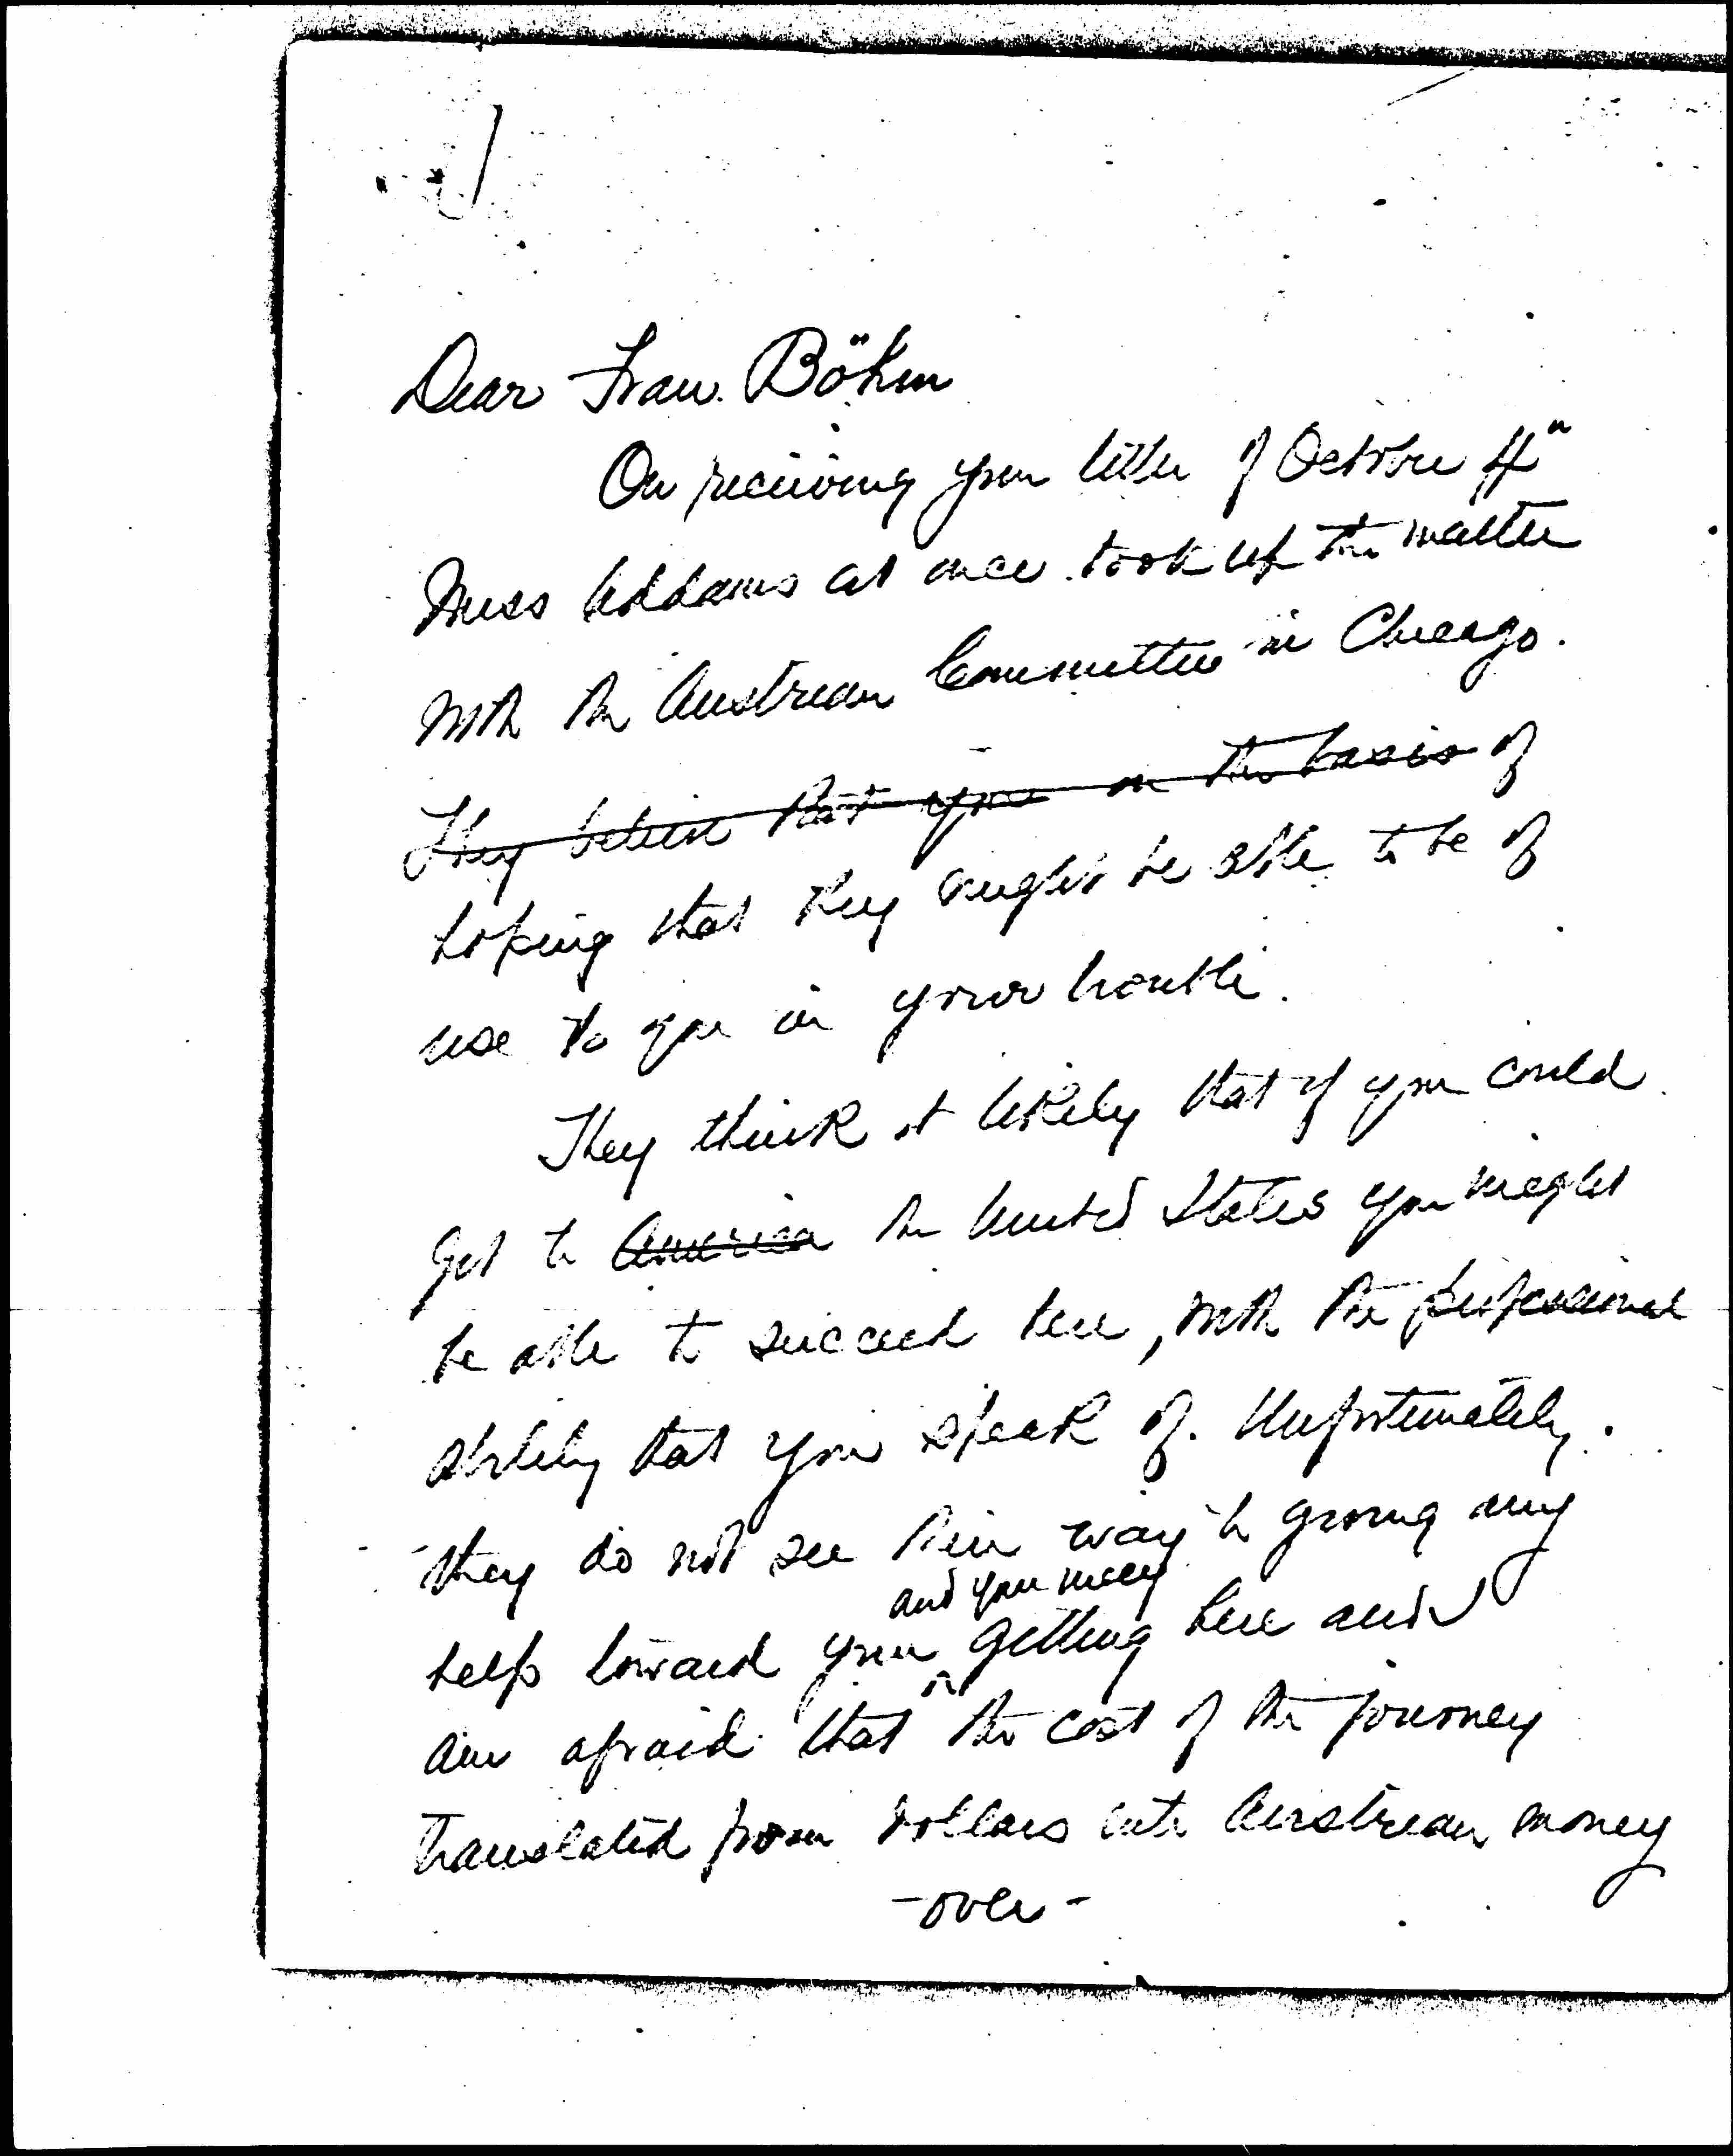 Dear Frau. Böhm
On receiving your letter of October 4"
Miss Addams at once took up the matter
with the Austrian Committee in Chicago.
They believe that you on the basis of
hoping that they might be able to be of
use to you in your trouble.
They think it likely that if you could
get to America the United States you might
be able to succeed here, with the professional
ability that you speak of. Unfortunately.
they do not see their way to giving any
and you may
help toward your getting here and
am afraid that the cost of the journey
translated from dollars into Austrian money
-over-